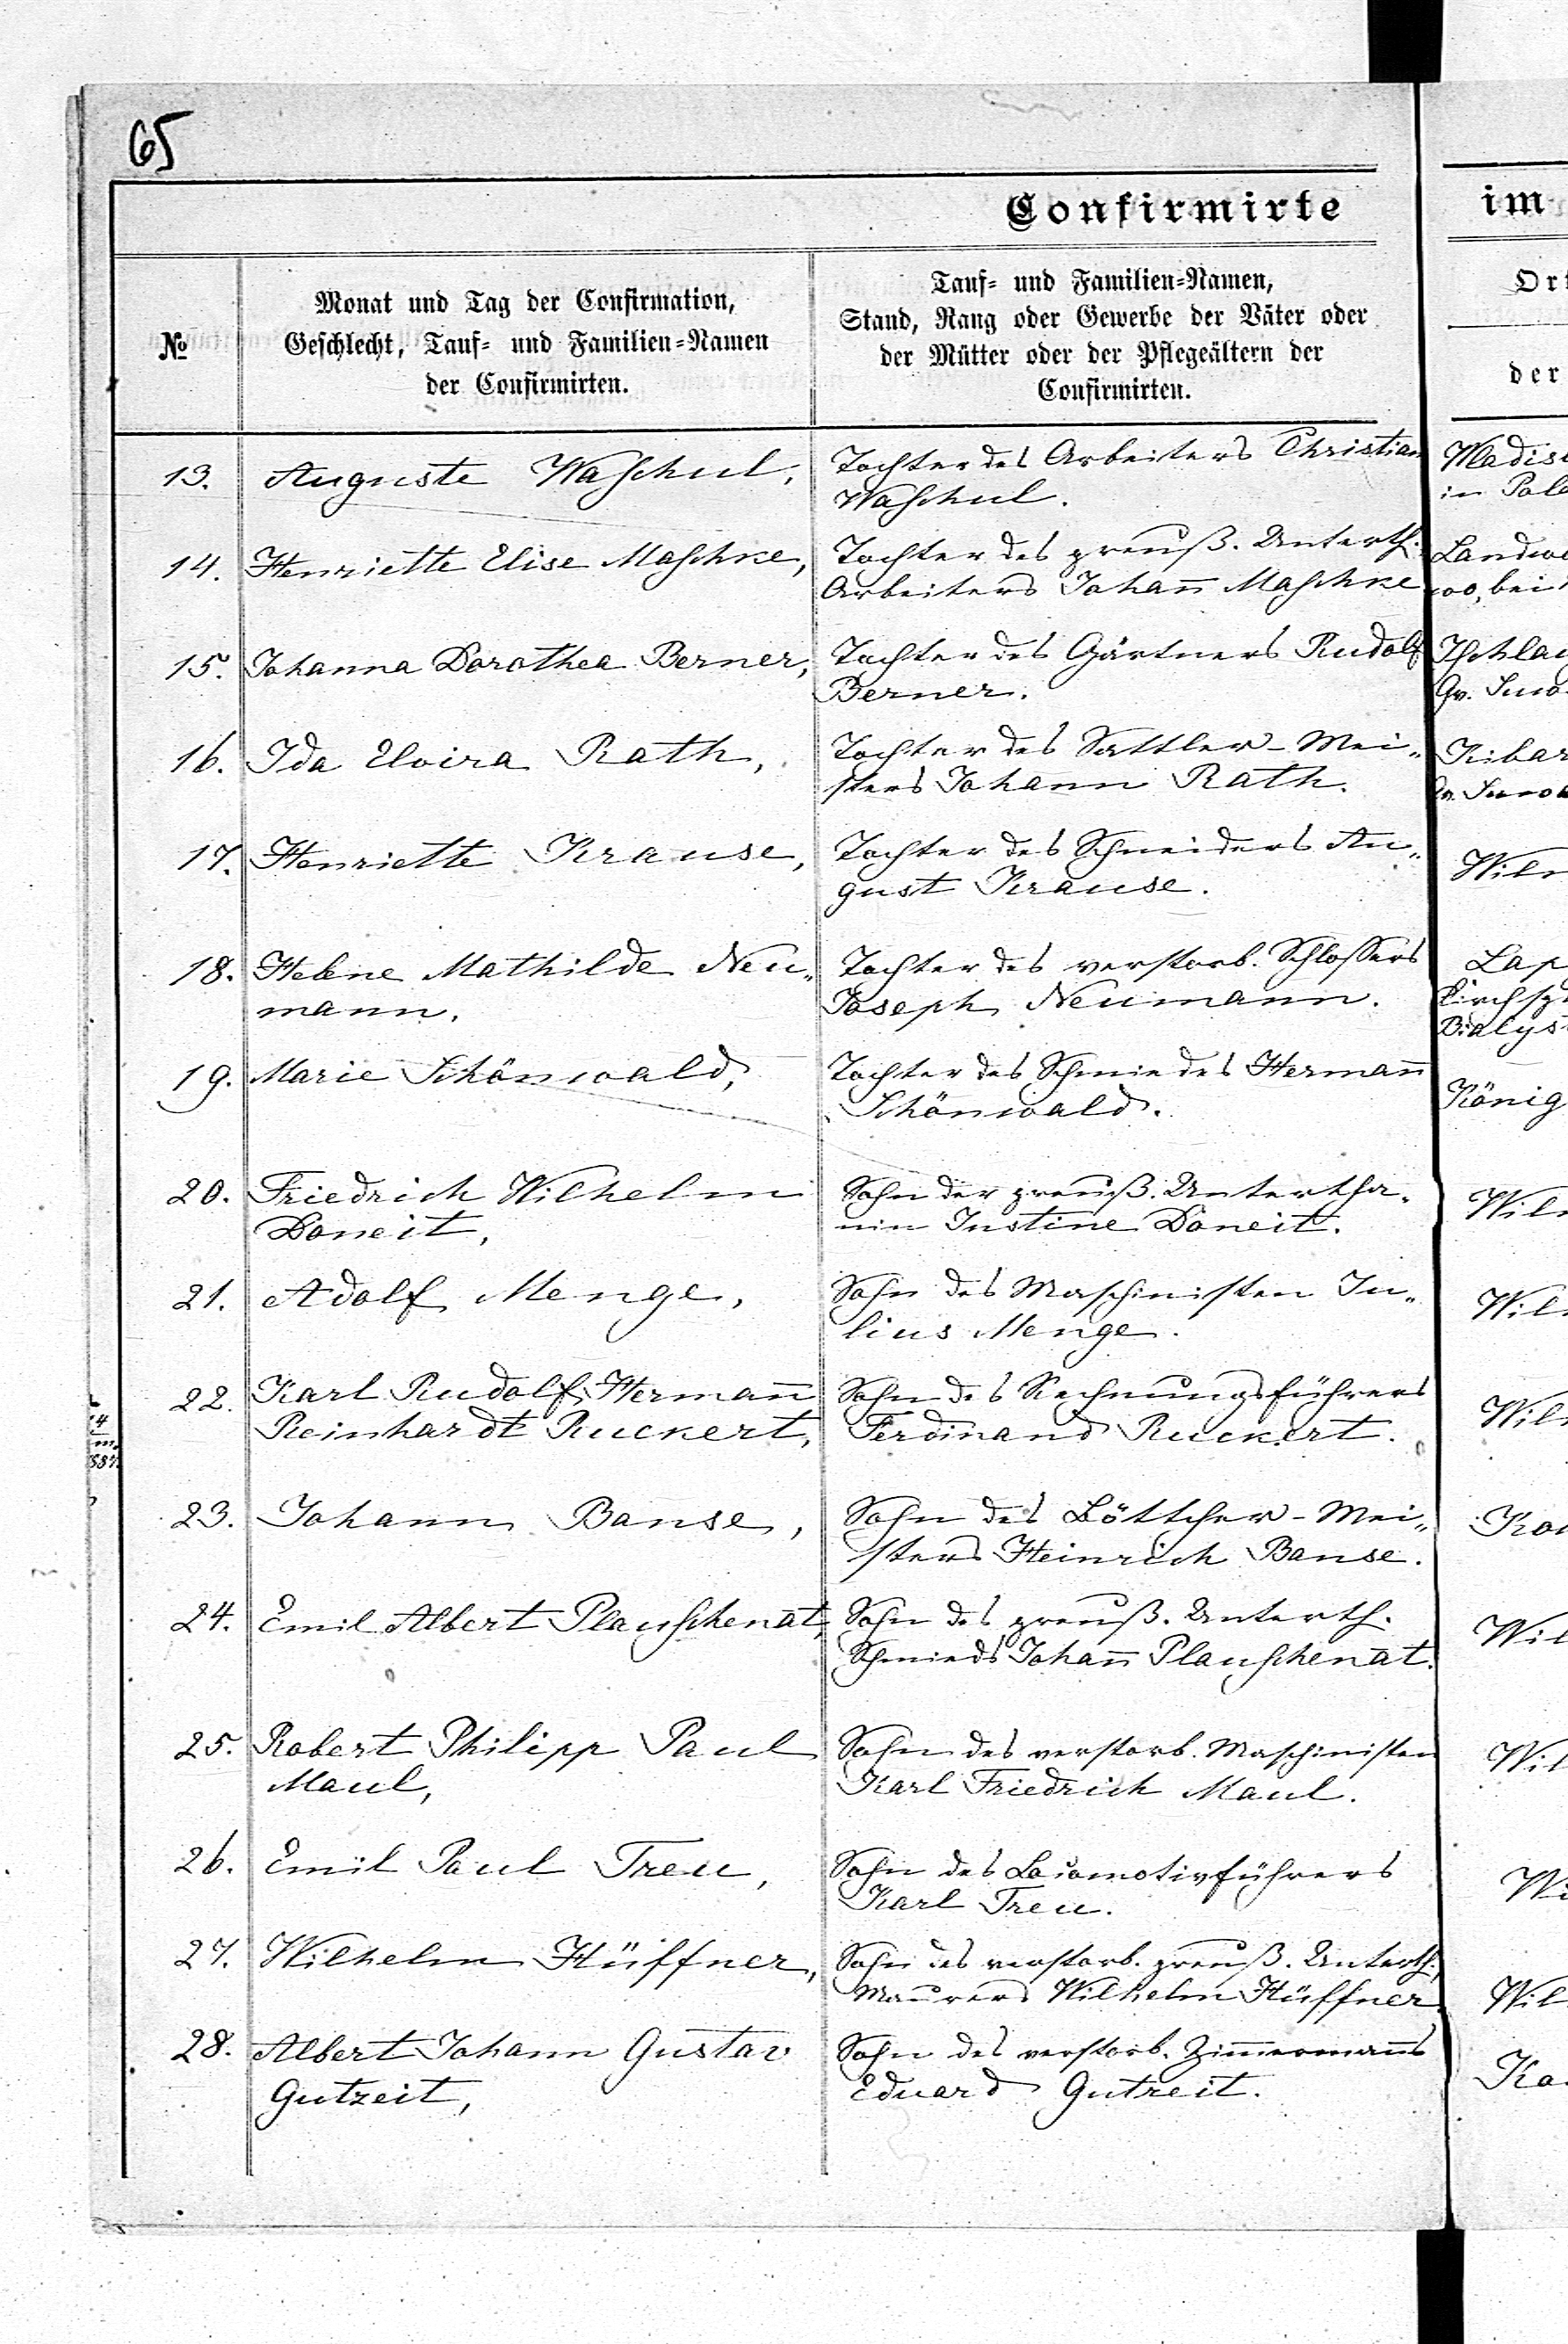 65
Confirmirte
im
№
Monat und Tag der Confirmation,
Geschlecht, Tauf- und Familien-Namen
der Confirmirten.
Tauf- und Familien-Namen,
Stand, Rang oder Gewerbe der Väter oder
der Mütter oder der Pflegeältern der
Confirmirten.
der
13. Auguste Waschul,
Tochter des Arbeiters Christian
Waschul.
in
14. Henriette Elise Maschke,
Tochter des preuß. Unterth.
Arbeiters Johañ Maschke
bei
15. Johanna Dorothea Berner,
Tochter des Gärtners Rudolf
Berner.
Gv.
16. Ida Elvira Rath,
Tochter des Sattler-Mei„
sters Johann Rath.
17. Henriette Krause,
Tochter des Schneiders Au„
gust Krause.
18. Helene Mathilde Neu„
mann,
Tochter des verstorb. Schlossers
Joseph Neumann.
19. Marie Schönwald,
Tochter des Schmiedes Hermañ
Schönwald.
König
20. Friedrich Wilhelm
Doneit,
Sohn der preuß. Untertha„
nin Justine Doneit.
21. Adolf Menge,
Sohn des Maschinisten Ju„
lius Menge.
22. Karl Rudolf Hermañ
Reinhardt Ruckert,
Sohn des Rechnungsführers
Ferdinand Ruckert.
23. Johann Banse,
Sohn des Böttcher-Mei„
sters Heinrich Banse.
24. Emil Albert Plauschenat,
Sohn des preuß. Unterth.
Schmieds Johañ Plauschenat.
25. Robert Philipp Paul
Maul,
Sohn des verstorb. Maschinisten
Karl Friedrich Maul.
26. Emil Paul Treu,
Sohn des Locomotivführers
Karl Treu.
27. Wilhelm Hüffner,
Sohn des verstorb. preuß. Unterth.,
Maurers Wilhelm Hüffner
28. Albert Johann Gustav
Gutzeit,
Sohn des verstorb. Zim̃ermañs
Eduard Gutzeit.